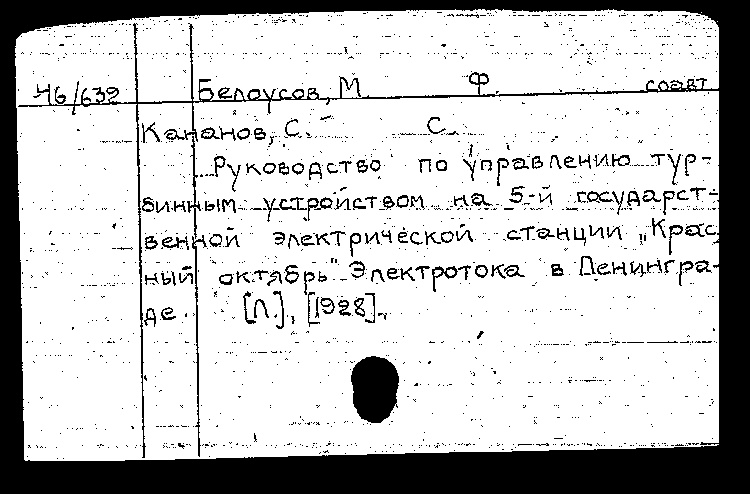 46/632 Белоусов, М. Ф. соавт
Кананов, С. С.
Руководство по управлению тур-
бинным устройством на 5-й государст-
венной электрической станции „Крас
ный октябрь" Электротока в Ленингра-
де. [Л.], [1928].,